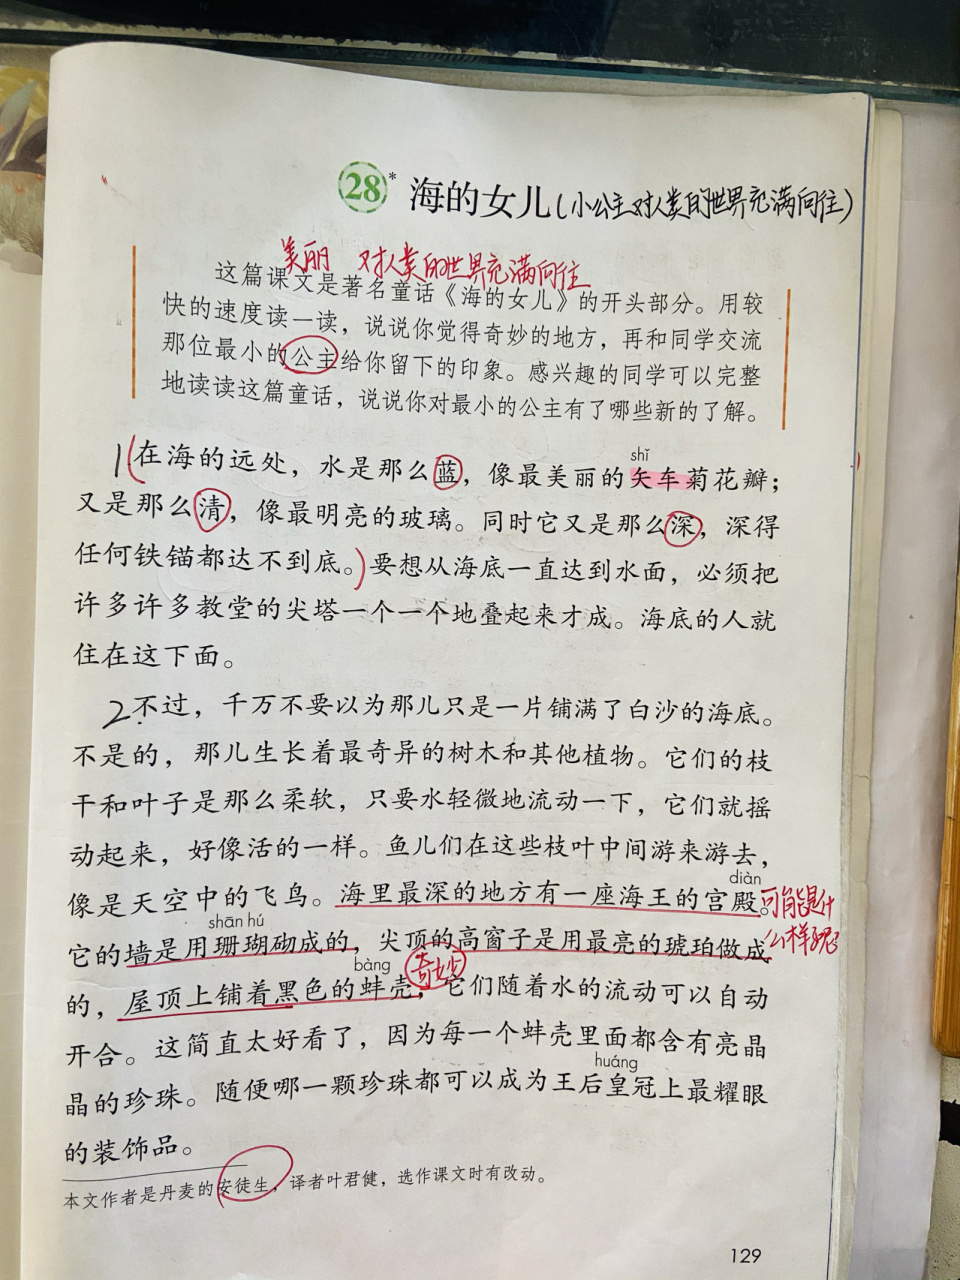 28* 海的女儿(小公主对人类的世界充满向往)
美丽 对人类的世界充满向往
这篇课文是著名童话《海的女儿》的开头部分。用较
快的速度读一读，说说你觉得奇妙的地方，再和同学交流
那位最小的公主给你留下的印象。感兴趣的同学可以完整
地读读这篇童话，说说你对最小的公主有了哪些新的了解。
shǐ
1(在海的远处，水是那么蓝，像最美丽的矢车菊花瓣；
又是那么清，像最明亮的玻璃。同时它又是那么深，深得
任何铁锚都达不到底。)要想从海底一直达到水面，必须把
许多许多教堂的尖塔一个一个地叠起来才成。海底的人就
住在这下面。
2不过，千万不要以为那儿只是一片铺满了白沙的海底。
不是的，那儿生长着最奇异的树木和其他植物。它们的枝
干和叶子是那么柔软，只要水轻微地流动一下，它们就摇
动起来，好像活的一样。鱼儿们在这些枝叶中间游来游去，
diàn
像是天空中的飞鸟。海里最深的地方有一座海王的宫殿。可能是什
shān hú
它的墙是用珊瑚砌成的，尖顶的高窗子是用最亮的琥珀做成么样子呢
bàng 奇妙
的，屋顶上铺着黑色的蚌壳，它们随着水的流动可以自动
开合。这简直太好看了，因为每一个蚌壳里面都含有亮晶
huáng
晶的珍珠。随便哪一颗珍珠都可以成为王后皇冠上最耀眼
的装饰品。
本文作者是丹麦的安徒生，译者叶君健，选作课文时有改动。
129